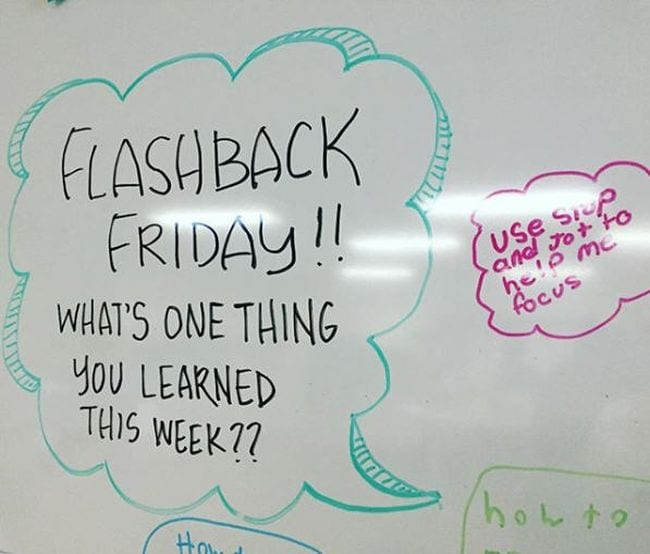 FLASHBACK
FRIDAY!!
WHAT'S ONE THING
YOU LEARNED
THIS WEEK??
use stop
and jot to
help me
focus
how to
How